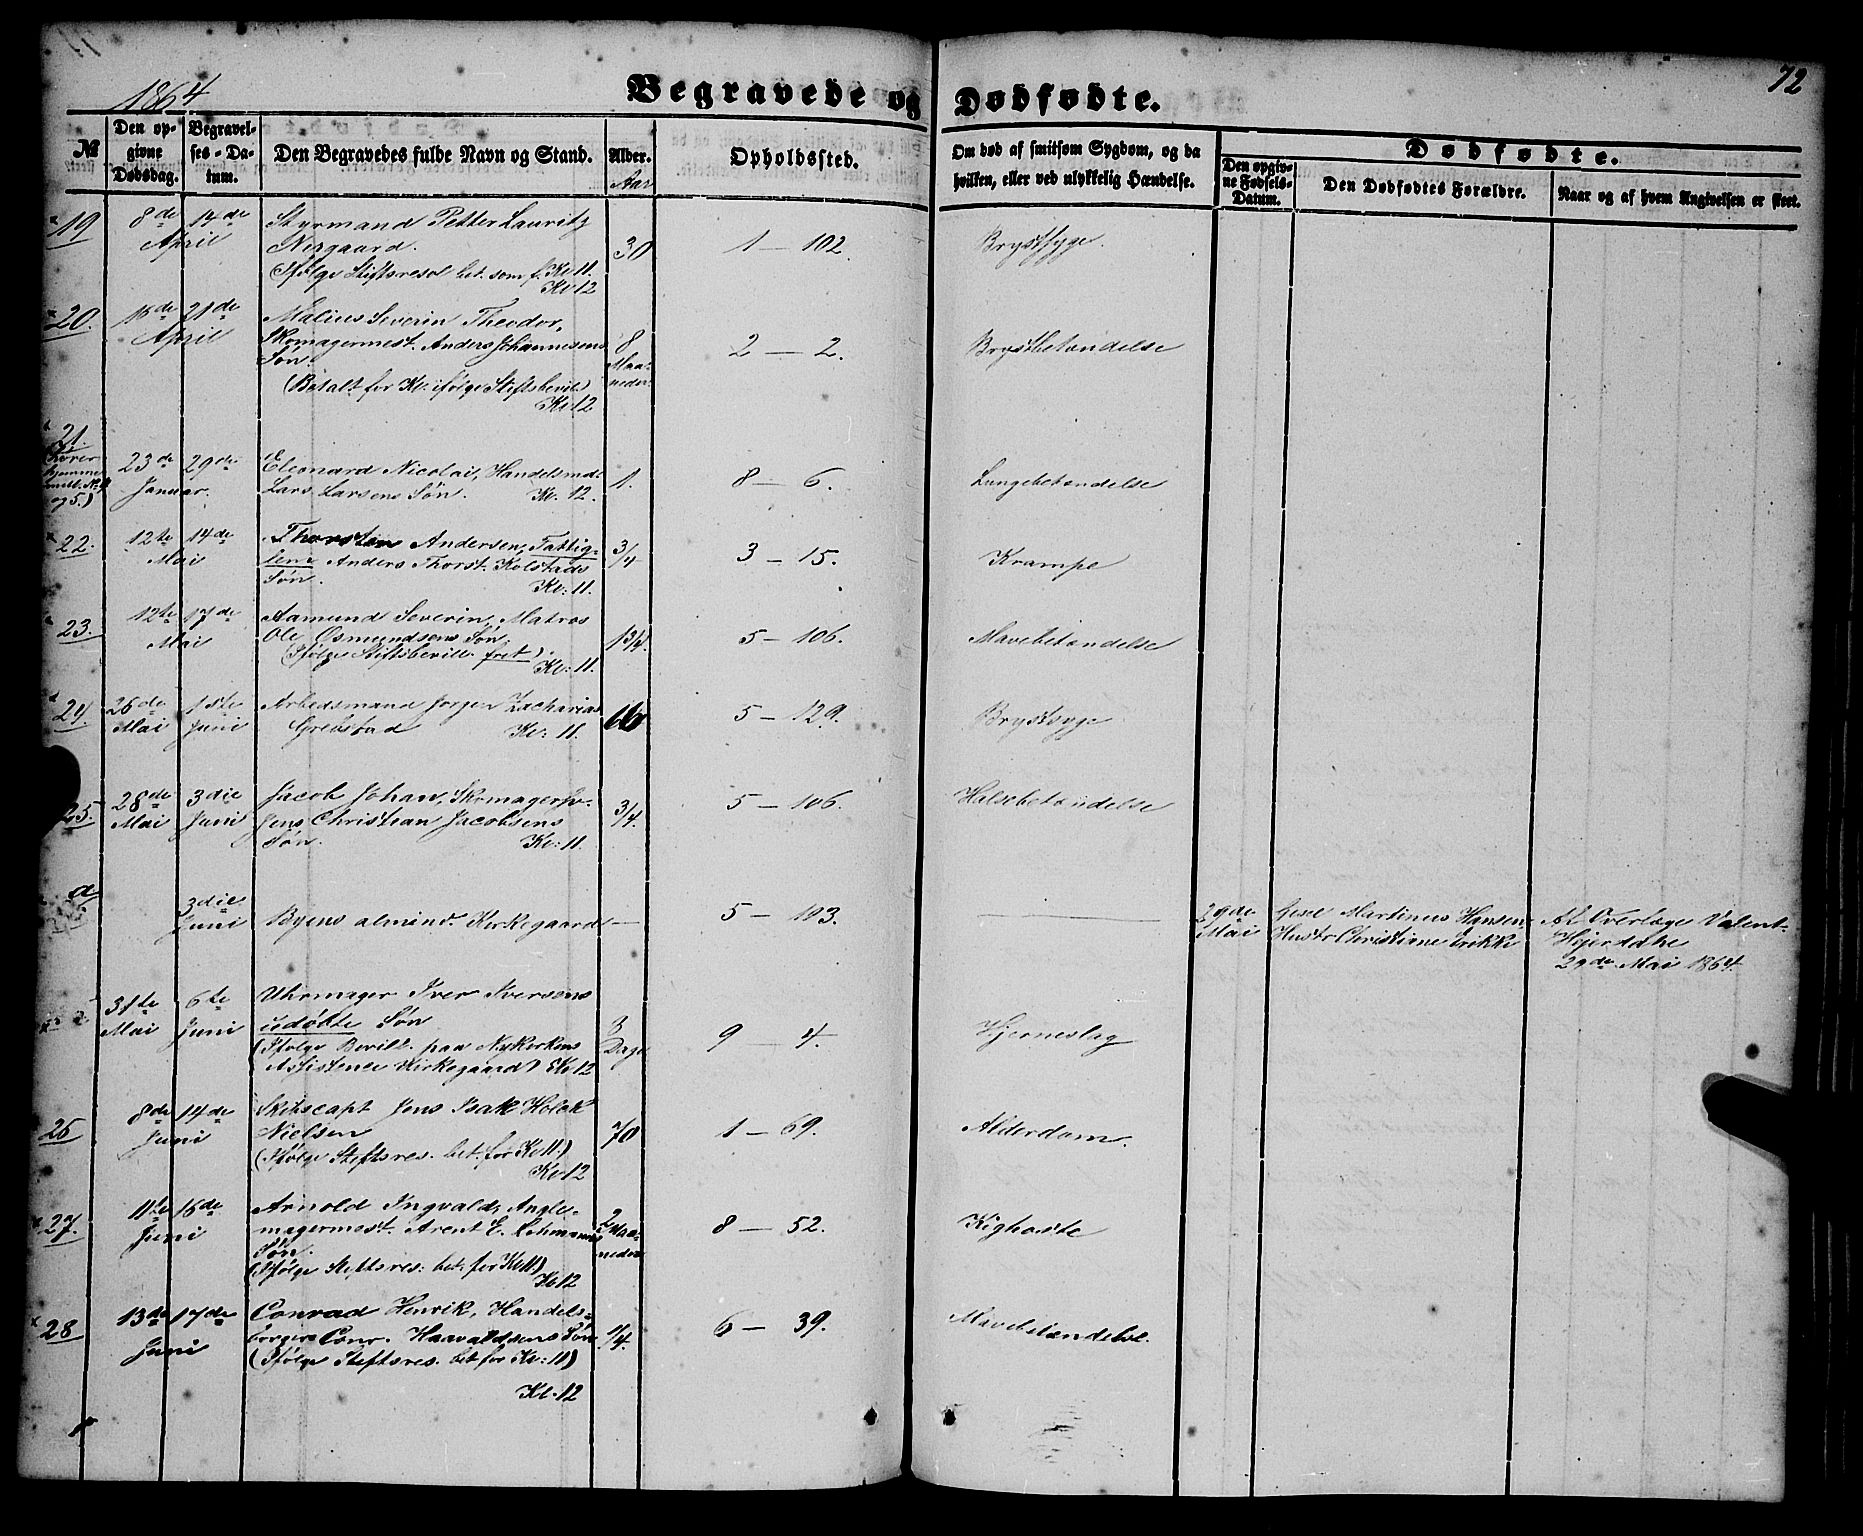 1864
Begravede og Dødfødte.
72
№
Den opgivne Dødsdag.
Begravelses-Datum.
Den Begravedes fulde Navn og Stand.
Alder.
Aar
Opholdssted.
Om død af smitsom Sygdom, og da hvilken, eller ved ulykkelig Hændelse.
Dødfødte.
Den opgivne Fødsels-Datum.
Den Dødfødtes Forældre.
Naar og af hvem Angivelsen er skeet.
19
8de 14de
April
Styrmand Petter Lauritz
Nergaard.
(Ifølge Stiftsresol. bet. som f. Kl 11.
Kl 12
30
1 — 102.
Brystsyge.
20.
15de 21de
April
Malius Severin Theodor,
Skomagermest. Anders Johannesens
Søn.
(Betalt for Kl. ifølge Stiftsbevil.)
Kl 12
8
Maa-
neder
2 — 2.
Brystbetændelse
21.
og 5.)
23de 29de
Januar.
Eleonard Nicolai, Handelsmd.
Lars Larsens Søn. Kl. 12.
1.
8 — 6.
Lungebetændelse
22.
12te 14de
Mai
Thorsten Andersen, Fattig-
lem Anders Thorst. Kolstads
Søn.
Kl: 11.
3/4
3 — 15.
Krampe
23.
12te 17de
Mai
Aamund Severin, Matros
Ole Osmundsens Søn.
(Ifølge Stiftsbevill. frit).
Kl: 11.
1 3/4.
5 — 106.
Mavebetændelse
24.
26de 1ste
Mai Juni
Arbedsmand Jørgen Zacharias
Grebstad Kl: 11.
66
5 — 129.
Brystsyge
25.
28de 3die
Mai Juni
Jacob Johan, Skomagersv-
Jens Christian Jacobsens
Søn. Kl: 11.
3/4.
5 — 106.
Halsebetændelse
d
3die
Juni
Byens almind. Kirkegaard
—
5 — 103.
29de
Mai
Gesel Martinus Hansen
Hustr Christiane Erikke
Af Overlæge Valent.
Hjerdahl
29de Mai 1864.
31te 6te
Mai Juni
Uhrmager Iver Iversens
udøbte Søn
(Ifølge Bevill. paa Nykirkens
Assistence Kirkegaard) Kl 12
3
Dage
9 — 4.
Hjerneslag
26
8de 14de
Juni
Skibscapt Jens Isak Holck
Nielsen
(Ifølge Stiftsres. bet. for Kl 11.)
Kl 12
70
1 — 69.
Alderdom.
27.
11te 16de
Juni
Arnold Ingvald, Angle-
magermest. Arent E. Lehmanns
Søn.
(Ifølge Stiftsres: bet: for Kl 11)
Kl 12
2
Maa-
neder
8 — 52.
Kighoste
28
13de 17de
Juni
Conrad Henrik, Handels-
borgers Conr. Haavaldsens Søn
(Ifølge Stiftsres. bet for Kl: 11)
Kl. 12
1/4.
6 — 39.
Mavebetændelse.